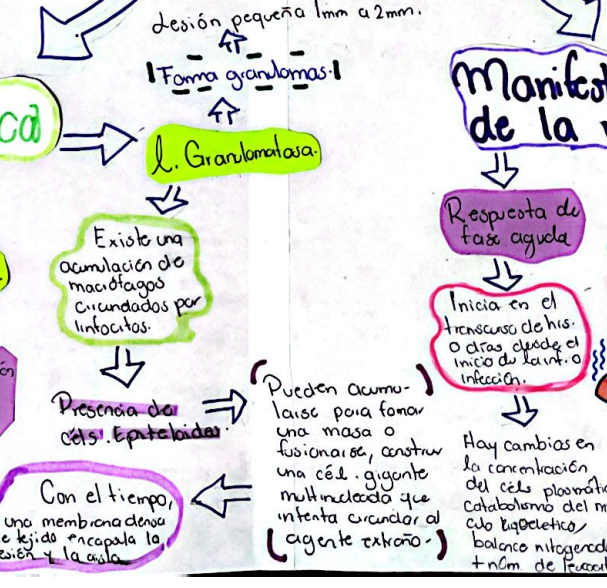 Lesión pequeña 1mm a 2mm.
Forma granulomas.
l. Granulomatosa.
Existe una
acumulación de
macrófagos
circundados por
linfocitos.
Presencia de
céls. Epiteloides.
Pueden acumu-
larse para formar
una masa o
fusionarse, construir
una cél. gigante
multinucleada que
intenta circundar al
agente extraño.
Con el tiempo,
una membrana densa
e tejido encapsula la
esión y la aisla
Manifest
de la
Respuesta de
fase aguda
Inicia en el
transcurso de hrs.
o días desde el
inicio de la inf. o
infección.
Hay cambios en
la concentración
del céls plasmátic
catabolismo del m
culo esquelético,
balance nitrogenado
+ núm. de leucocit